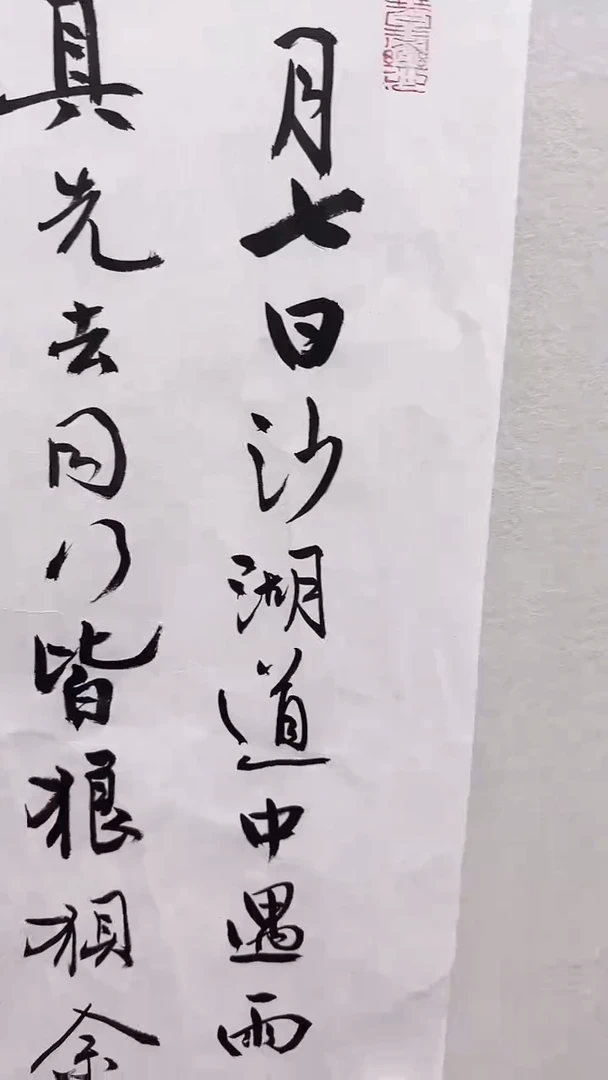 月七日沙湖道中遇雨
具先去同行皆狼狽余